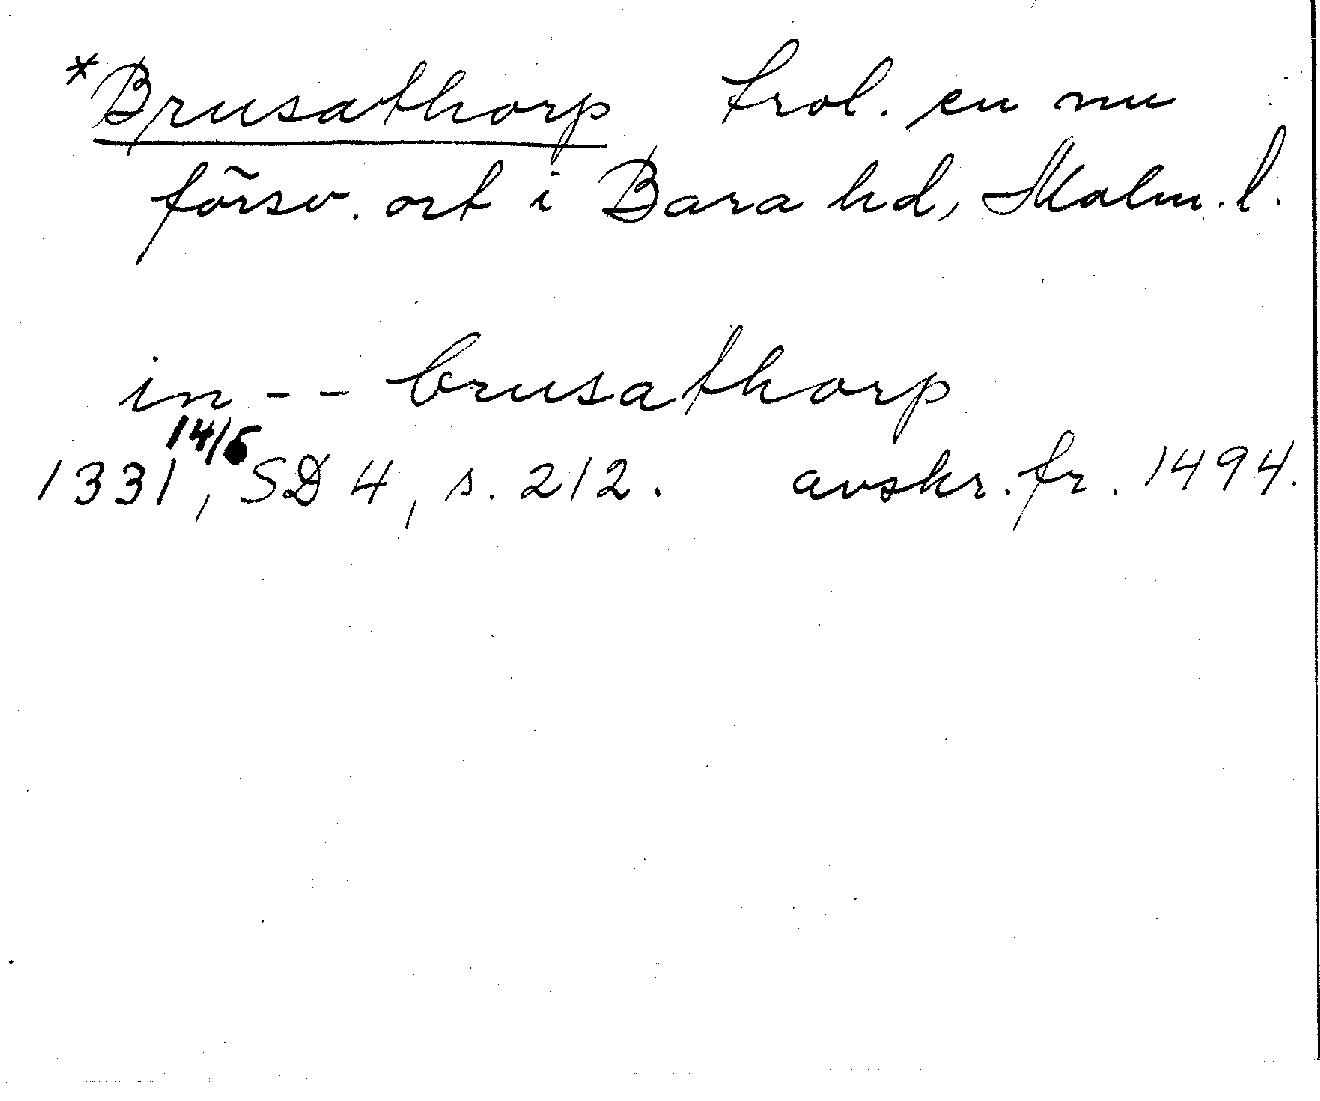 *Brusathorp trol. en nu
försv. ort i Bara hd, Malm. l.
in - - brusathorp
14/6
1331, SD 4, s. 212. avskr. fr. 1494.